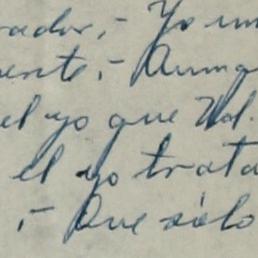 rador,- Yo un
ente,- Aunq
el yo que Ud.
el yo trata
,- Que sólo